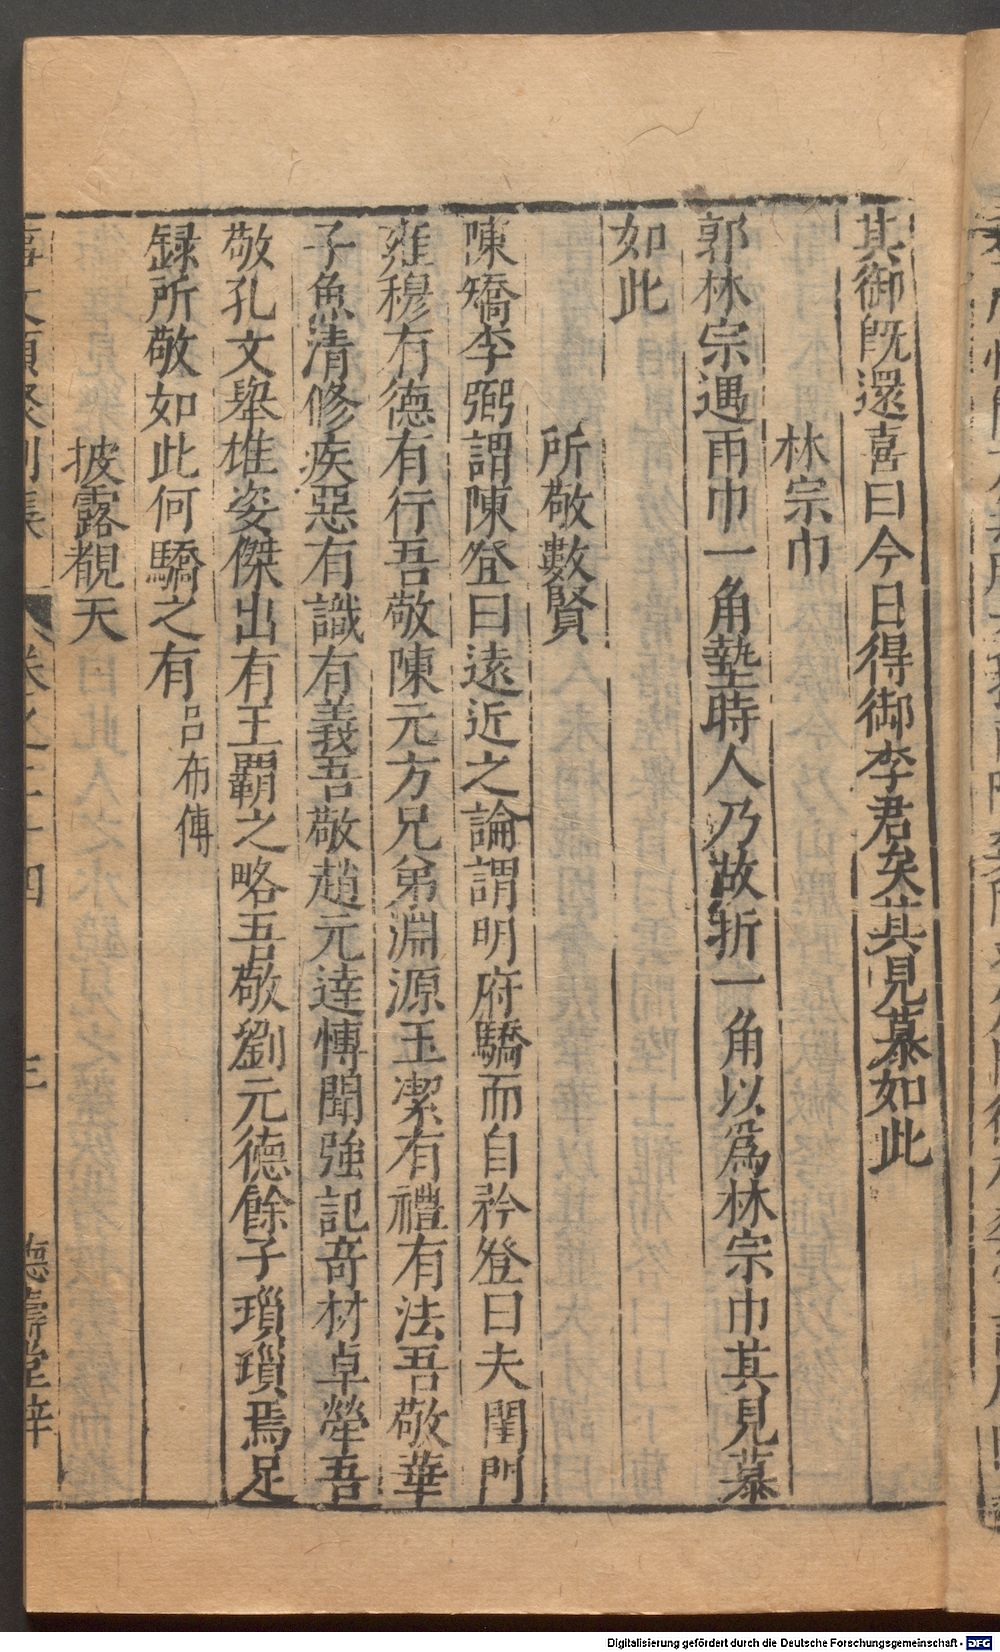 其御既還喜曰今日得御李君矣其見慕如此
林宗巾
郭林宗遇雨巾一角墊時人乃故折一角以爲林宗巾其見慕
如此
所敬數賢
陳矯李弼謂陳登曰遠近之論謂明府驕而自矜登曰夫閨門
雍穆有德有行吾敬陳元方兄弟淵源玉潔有禮有法吾敬華
子魚清修疾惡有識有義吾敬趙元達慱聞強記奇材卓犖吾
敬孔文舉雄姿傑出有王霸之略吾敬劉元德餘子瑣瑣焉足
録所敬如此何驕之有 呂布傳
披露覩天
卷之二十四 三 德壽堂梓
Digitalisierung gefördert durch die Deutsche Forschungsgemeinschaft - DFG